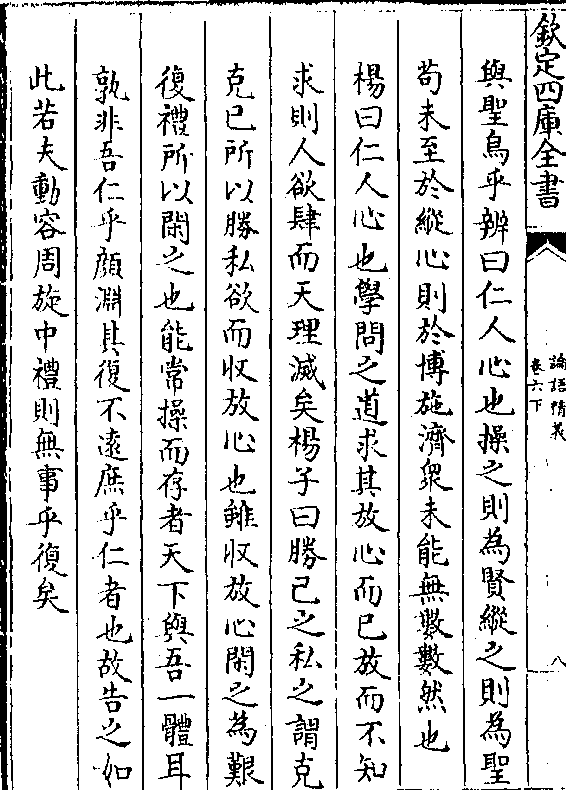 欽定四庫全書
論語精義
卷六下
八
與聖烏乎辨曰仁人心也操之則為賢縱之則為聖
苟未至於縱心則於博施濟衆未能無數數然也
楊曰仁人心也學問之道求其放心而已放而不知
求則人欲肆而天理滅矣楊子曰勝己之私之謂克
克己所以勝私欲而収放心也雖収放心閑之為艱
復禮所以閑之也能常操而存者天下與吾一體耳
孰非吾仁乎顔淵其復不逺庶乎仁者也故告之如
此若夫動容周旋中禮則無事乎復矣